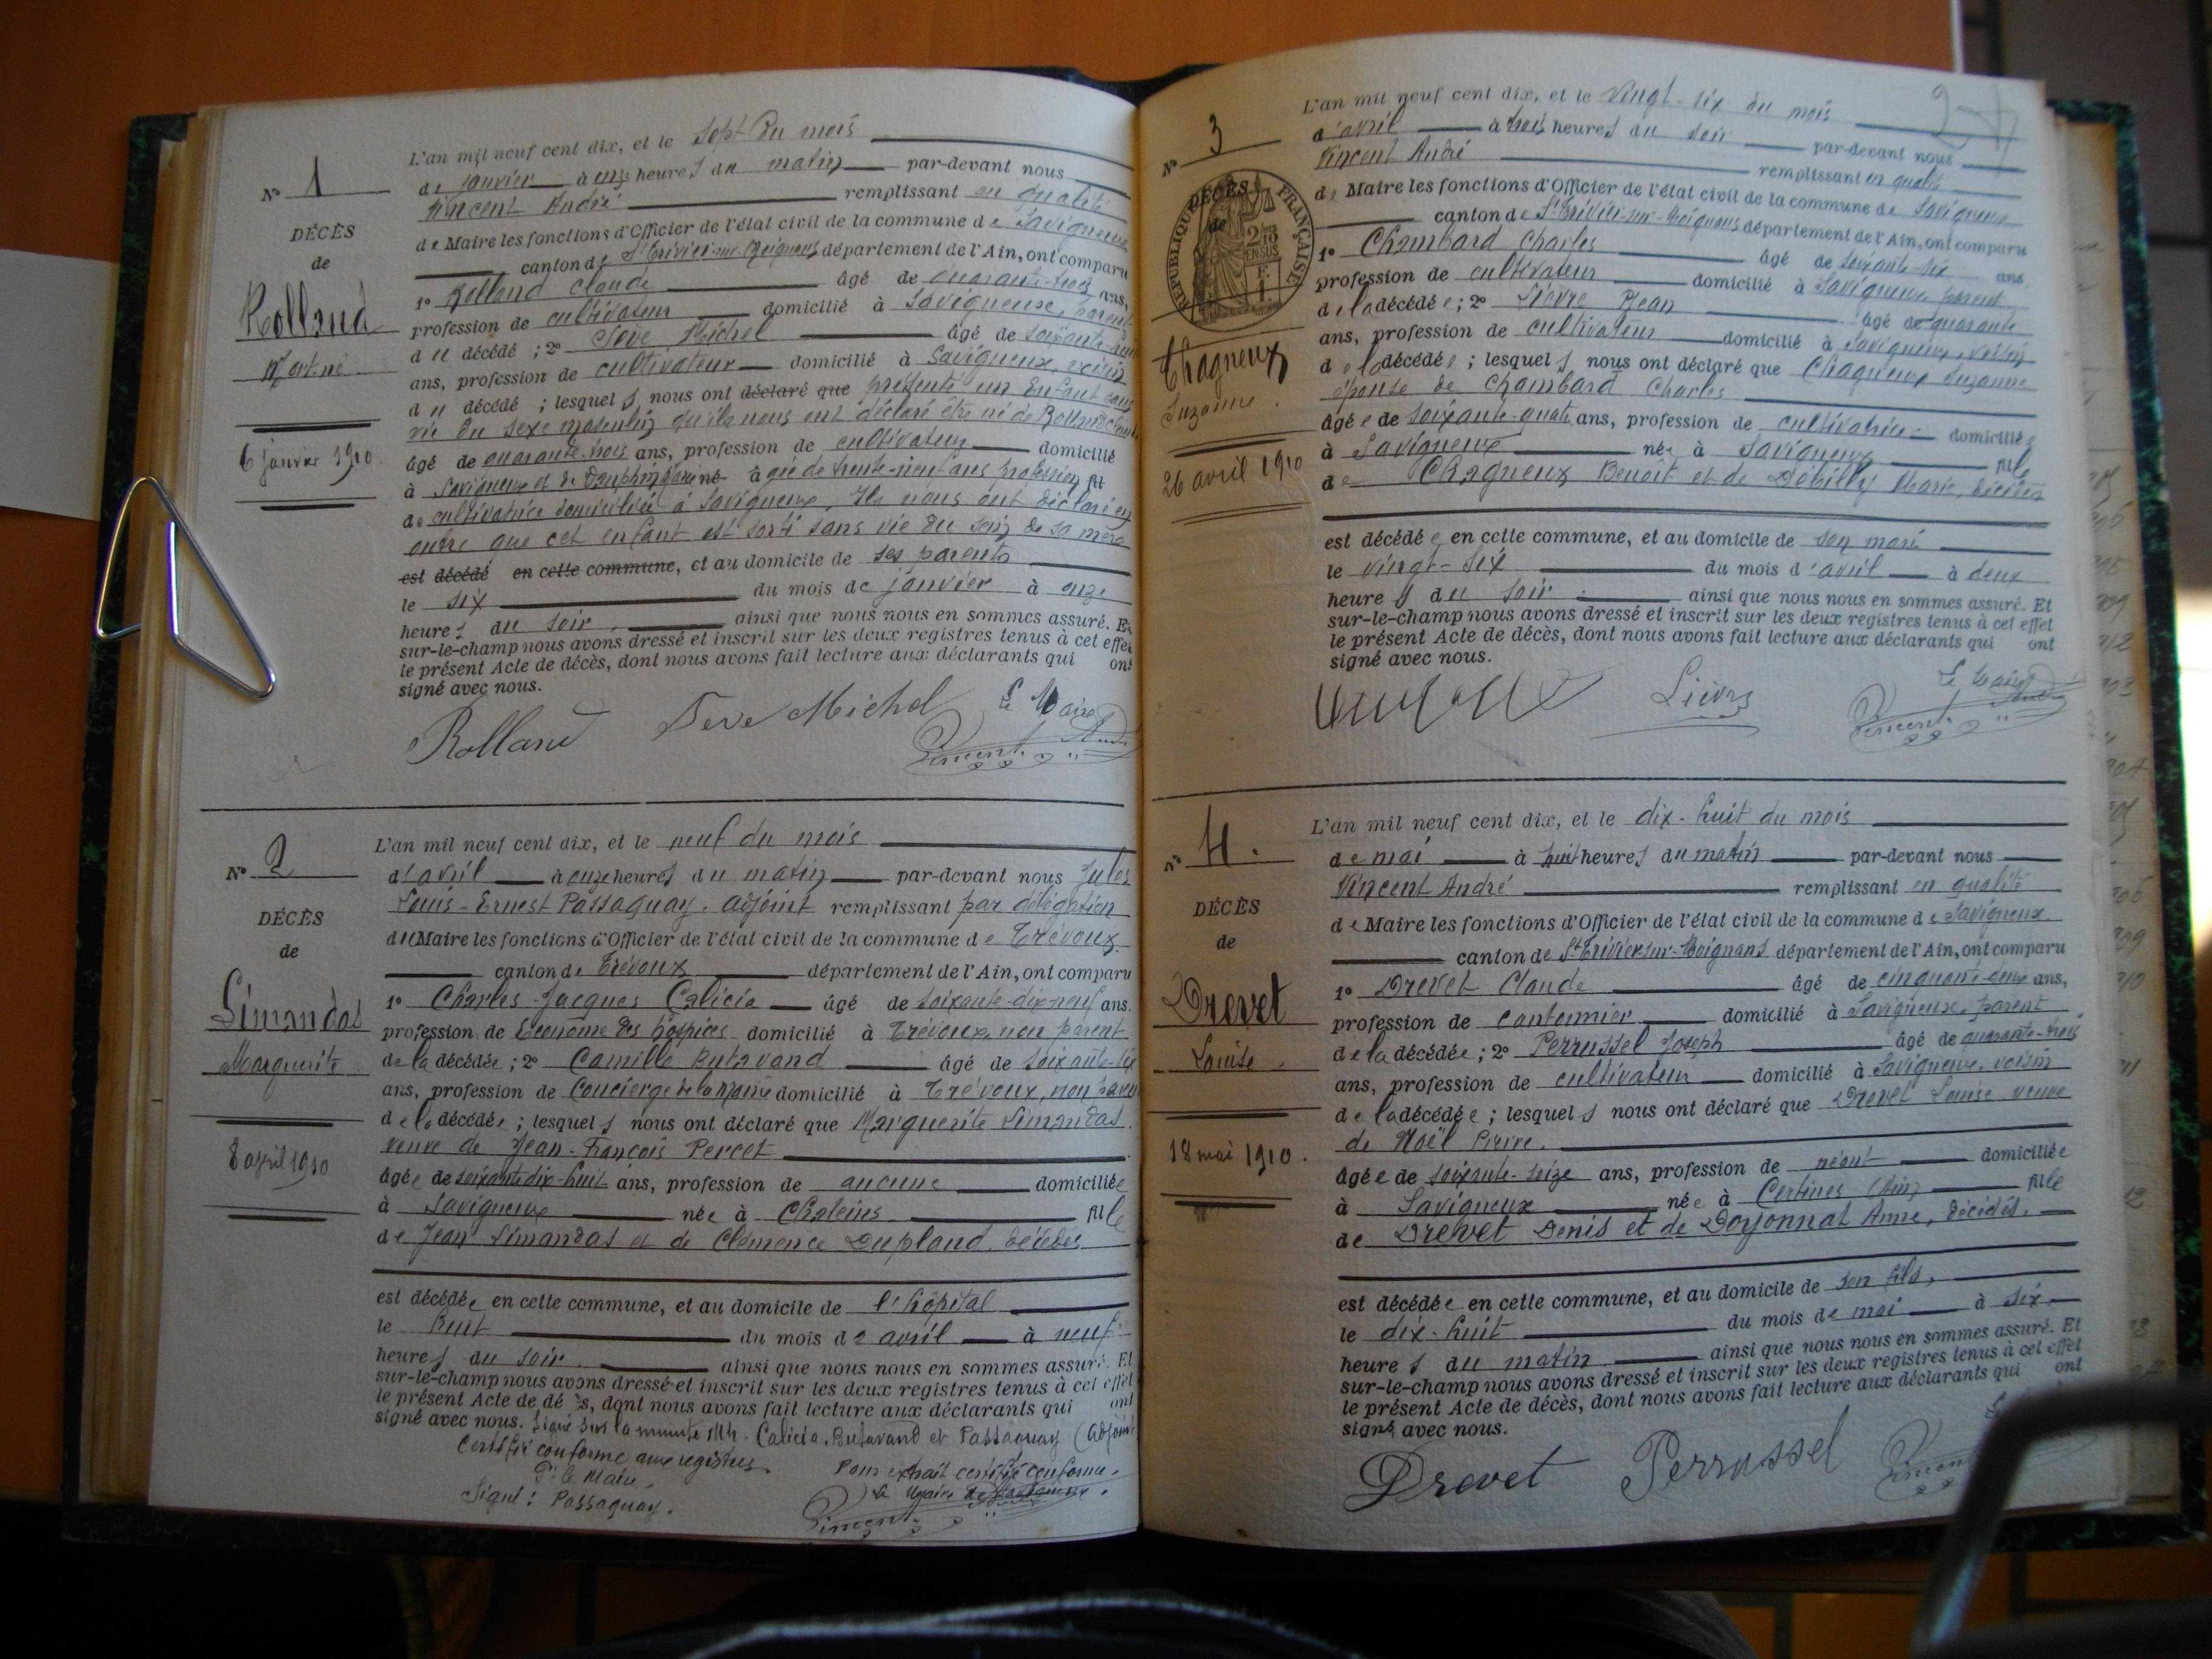 N° 1
DÉCÈS
de
Rolland
Mort-né
6 janvier 1910.
L'an mil neuf cent dix, et le sept du mois
de janvier à onze heures du matin par-devant nous
Vincent André remplissant en qualité
de Maire les fonctions d'Officier de l'état civil de la commune de Savigneux
canton de St Trivier-sur-Moignans département de l'Ain, ont comparu
1° Rolland Claude âgé de quarante-trois ans,
profession de cultivateur domicilié à Savigneux, parent
du décédé ; 2° Sève Michel âgé de soixante-
ans, profession de cultivateur domicilié à Savigneux, voisin
du décédé ; lesquels nous ont déclaré que présenté un Enfant sans
vie du sexe masculin qu'ils nous ont déclaré être né de Rolland Claude
âgé de quarante-trois ans, profession de cultivateur domicilié
à Savigneux et de née âgée de trente-neuf ans profession fil
de cultivatrice domiciliée à Savigneux. Ils nous ont déclaré en
outre que cet enfant est sorti sans vie du sein de sa mère
est décédé en cette commune, et au domicile de ses parents
le six du mois de janvier à onze
heures du soir. ainsi que nous nous en sommes assuré. Et
sur-le-champ nous avons dressé et inscrit sur les deux registres tenus à cet effet
le présent Acte de décès, dont nous avons fait lecture aux déclarants qui ont
signé avec nous.
Rolland Seve Michel Le Maire
Vincent André
N° 2
DÉCÈS
de
Simandas
Marguerite
8 avril 1910
L'an mil neuf cent dix, et le neuf du mois
d'avril à onze heures du matin par-devant nous Jules
Louis-Ernest Passaquay, adjoint remplissant par délégation
du Maire les fonctions d'Officier de l'état civil de la commune de Trévoux
canton de Trévoux département de l'Ain, ont comparu
1° Charles Jacques Calicia âgé de soixante-dix-neuf ans.
profession de Econome des hospices domicilié à Trévoux, non parent
de la décédée ; 2° Camille Butavand âgé de soixante-six
ans, profession de Concierge de la Mairie domicilié à Trévoux, non parent
de la décédée ; lesquels nous ont déclaré que Marguerite Simandas
veuve de Jean-François Percet
âgée de soixante dix-huit ans, profession de aucune domiciliée
à Savigneux née à Chaleins fille
de Jean Simandas et de Clémence Dupland, décédés
est décédée en cette commune, et au domicile de l'hôpital
le huit du mois de avril à neuf
heures du soir. ainsi que nous nous en sommes assuré. Et
sur-le-champ nous avons dressé et inscrit sur les deux registres tenus à cet effet
le présent Acte de décès, dont nous avons fait lecture aux déclarants qui ont
signé avec nous. Signé sur la minute MM. Calicia, Butavand et Passaquay (adjoint
Certifié conforme aux registres.
Pr le Maire,
Signé : Passaquay.
Pour extrait certifié conforme.
Le Maire de Savigneux.
Vincent
N° 3
DÉCÈS
de
RÉPUBLIQUE FRANÇAISE
Chagneux
Suzanne.
26 avril 1910
L'an mil neuf cent dix, et le vingt-six du mois
d'avril à trois heures du soir par-devant nous
Vincent André remplissant en qualité
de Maire les fonctions d'Officier de l'état civil de la commune de Savigneux
canton de St Trivier-sur-Moignans département de l'Ain, ont comparu
1° Chambard Charles âgé de soixante-six ans
profession de cultivateur domicilié à Savigneux parent
de la décédée ; 2° Lièvre Jean âgé de quarante
ans, profession de cultivateur domicilié à Savigneux, voisin
de la décédée ; lesquels nous ont déclaré que Chagneux Suzanne
épouse de Chambard Charles
âgée de soixante-quatre ans, profession de cultivatrice domiciliée
à Savigneux née à Savigneux fille
de Chagneux Benoît et de Débilly Marie, décédés
est décédée en cette commune, et au domicile de son mari
le vingt-six du mois d'avril à deux
heures du soir. ainsi que nous nous en sommes assuré. Et
sur-le-champ nous avons dressé et inscrit sur les deux registres tenus à cet effet
le présent Acte de décès, dont nous avons fait lecture aux déclarants qui ont
signé avec nous.
Lièvre Le Maire
Vincent André
N° 4.
DÉCÈS
de
Drevet
Louise.
18 mai 1910.
L'an mil neuf cent dix, et le dix-huit du mois
de mai à huit heures du matin par-devant nous
Vincent André remplissant en qualité
de Maire les fonctions d'Officier de l'état civil de la commune de Savigneux.
canton de St Trivier-sur-Moignans département de l'Ain, ont comparu
1° Drevet Claude âgé de cinquante-deux ans,
profession de cantonnier domicilié à Savigneux, parent
de la décédée ; 2° Perrussel Joseph âgé de quarante-trois
ans, profession de cultivateur domicilié à Savigneux, voisin
de la décédée ; lesquels nous ont déclaré que Drevet Louise veuve
de Noël Pierre.
âgée de soixante-seize ans, profession de néant domiciliée
à Savigneux née à Certines (Ain) fille
de Drevet Denis et de Doyonnat Anne, décédés.
est décédée en cette commune, et au domicile de son fils,
le dix-huit du mois de mai à six
heures du matin ainsi que nous nous en sommes assuré. Et
sur-le-champ nous avons dressé et inscrit sur les deux registres tenus à cet effet
le présent Acte de décès, dont nous avons fait lecture aux déclarants qui ont
signé avec nous.
Drevet Perrussel Vincent